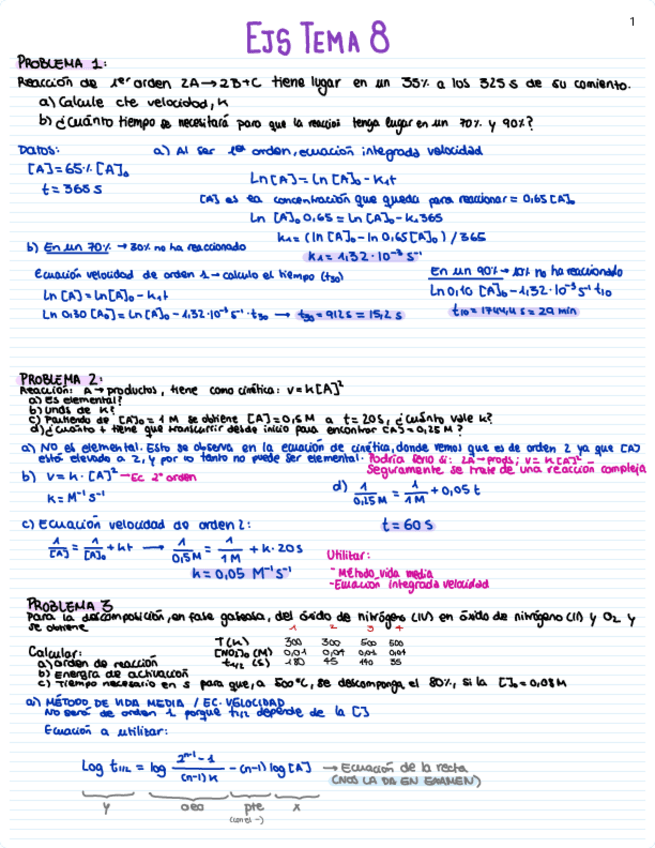 1
EJS TEMA 8
PROBLEMA 1:
Reacción de 1er orden 2A→2B+C tiene lugar en un 35% a los 325 s de su comienzo.
a) Calcule cte velocidad, k
b) ¿Cuánto tiempo se necesitará para que la reacción tenga lugar en un 70% y 90%?
Datos:
[A]=65% [A]₀
t = 365 s
a) Al ser 1er orden, ecuación integrada velocidad
Ln [A] = Ln [A]₀ - K₁t
[A] es la concentración que queda para reaccionar = 0,65 [A]₀
Ln [A]₀ 0,65 = Ln [A]₀ - K₁ 365
k₁ = (ln [A]₀ - ln 0,65 [A]₀) / 365
k₁ = 1,32 · 10⁻³ s⁻¹
b) En un 70% → 30% no ha reaccionado
Ecuación velocidad de orden 1 → calculo el tiempo (t₃₀)
Ln [A] = Ln [A]₀ - k₁t
Ln 0,30 [A₀] = Ln [A]₀ - 1,32 · 10⁻³ s⁻¹ · t₃₀ → t₃₀ = 912 s = 15,2 s
En un 90% → 10% no ha reaccionado
Ln 0,10 [A]₀ - 1,32 · 10⁻³ s⁻¹ t₁₀
t₁₀ = 1744,4 s = 29 min
PROBLEMA 2:
Reacción: A → productos, tiene como cinética: v = k[A]²
a) Es elemental?
b) Unds de K?
c) Partiendo de [A]₀ = 1 M se obtiene [A] = 0,5 M a t = 20 s, ¿cuánto vale k?
d) ¿Cuánto t tiene que transcurrir desde inicio para encontrar [A] = 0,25 M?
a) NO es elemental. Esto se observa en la ecuación de cinética, donde vemos que es de orden 2 ya que [A]
está elevado a 2, y por lo tanto no puede ser elemental. Podría serlo si: 2A → prods; v = k[A]²
Seguramente se trate de una reacción compleja
b) v = k · [A]² → Ec 2º orden
k = M⁻¹ s⁻¹
d) 1/0,25M = 1/1M + 0,05 t
t = 60 s
c) Ecuación velocidad de orden 2:
1/[A] = 1/[A]₀ + kt → 1/0,5M = 1/1M + k · 20 s
k = 0,05 M⁻¹ s⁻¹
Utilizar:
- Método vida media
- Ecuación integrada velocidad
PROBLEMA 3
Para la descomposición, en fase gaseosa, del óxido de nitrógeno (IV) en óxido de nitrógeno (II) y O₂ y
se obtiene
1 2 3 4
T (K) 300 300 500 500
[NO₂]₀ (M) 0,01 0,04 0,01 0,04
t₁/₂ (s) 180 45 140 35
Calcular:
a) orden de reacción
b) Energía de activación
c) Tiempo necesario en s para que, a 500 °C, se descomponga el 80%, si la [ ]₀ = 0,08 M
a) MÉTODO DE VIDA MEDIA / EC. VELOCIDAD
No será de orden 1 porque t₁/₂ depende de la [ ]
Ecuación a utilizar:
Log t₁/₂ = log (2ⁿ⁻¹ - 1)/((n-1) k) - (n-1) log [A] → Ecuación de la recta
(NOS LA DA EN EXAMEN)
y oeo pte x
(con el -)